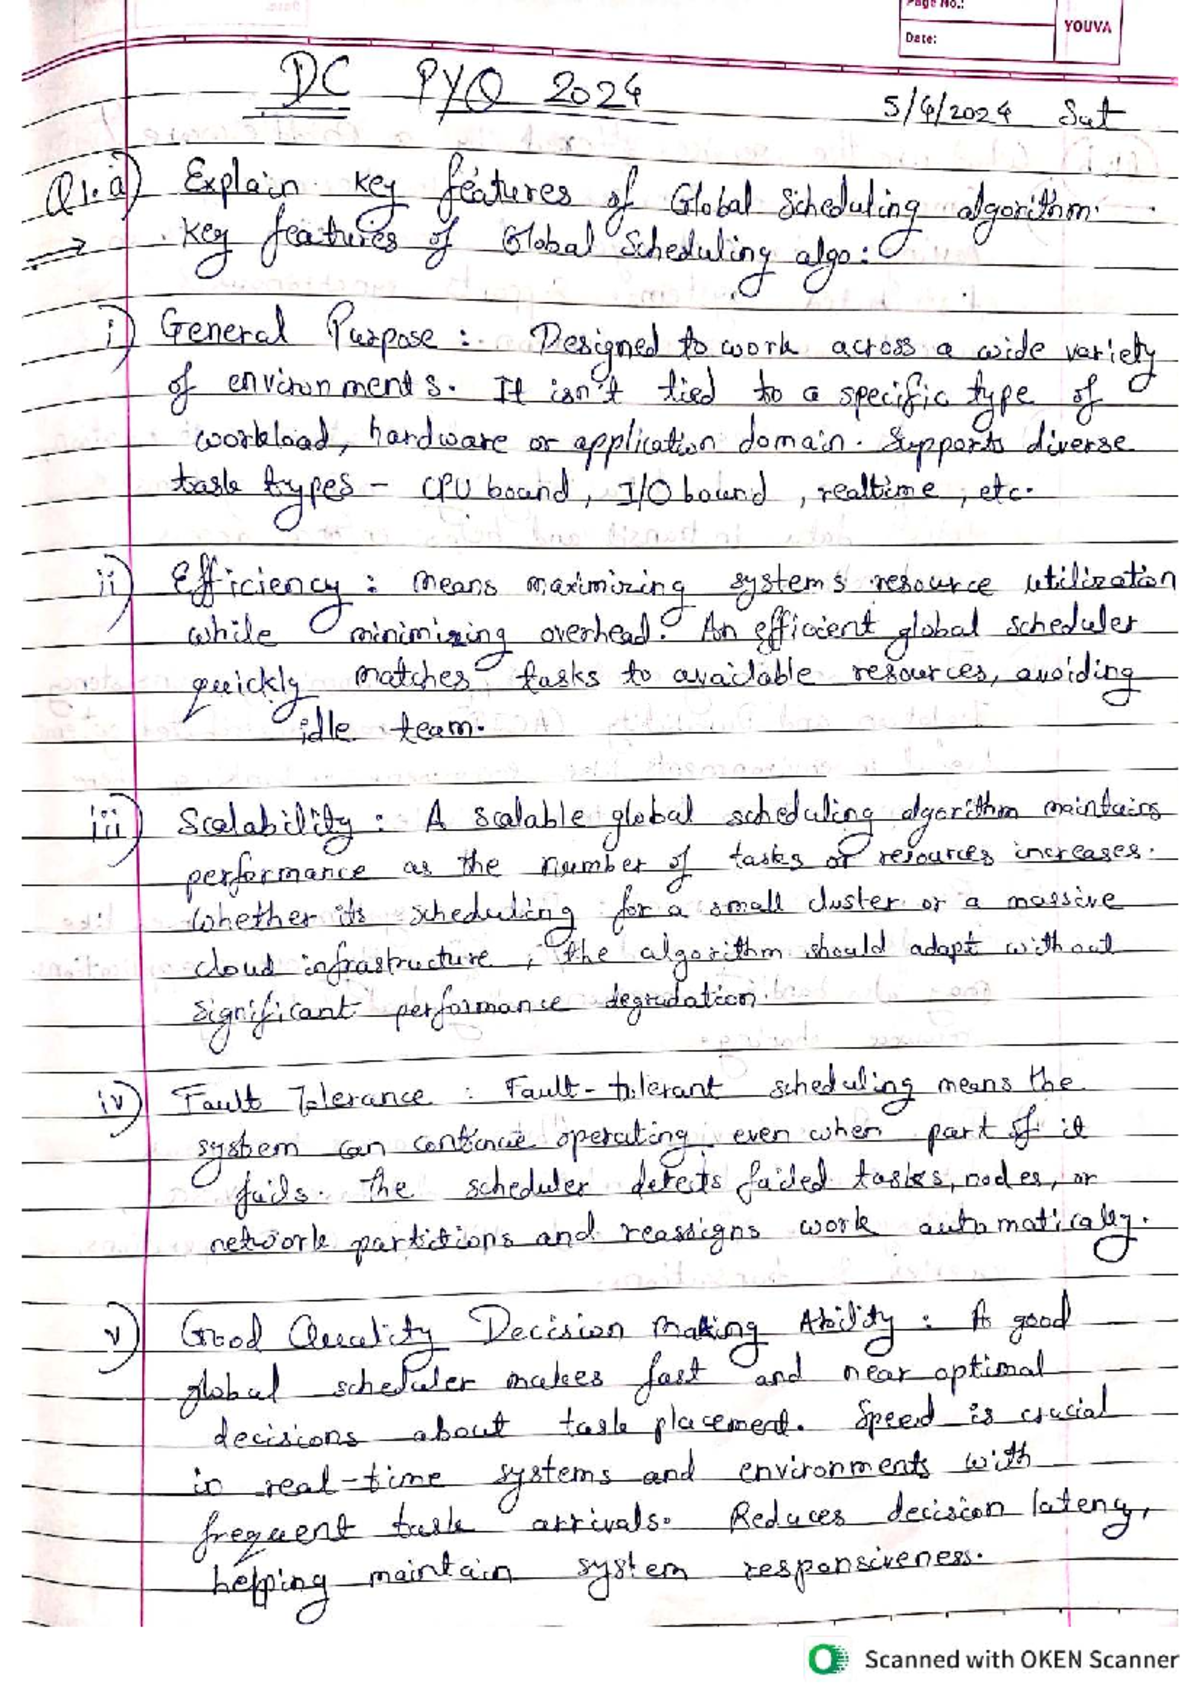 Page No.:
Date:
YOUVA
DC PYQ 2024
5/4/2024 Sat
Q1.a) Explain key features of Global Scheduling algorithm.
→ key features of Global Scheduling algo:
i) General Purpose : Designed to work across a wide variety
of environments. It isn't tied to a specific type of
workload, hardware or application domain. Supports diverse
task types - CPU bound, I/O bound, realtime, etc.
ii) Efficiency : Means maximizing systems resource utilization
while minimizing overhead. An efficient global scheduler
quickly matches tasks to available resources, avoiding
idle team.
iii) Scalability : A scalable global scheduling algorithm maintains
performance as the number of tasks or resources increases.
Whether its scheduling for a small cluster or a massive
cloud infrastructure, the algorithm should adapt without
significant performance degradation.
iv) Fault Tolerance : Fault-tolerant scheduling means the
system can continue operating even when part of it
fails. The scheduler detects failed tasks, nodes, or
network partitions and reassigns work automatically.
v) Good Quality Decision Making Ability : A good
global scheduler makes fast and near optimal
decisions about task placement. Speed is crucial
in real-time systems and environments with
frequent task arrivals. Reduces decision lateny,
helping maintain system responsiveness.
Scanned with OKEN Scanner